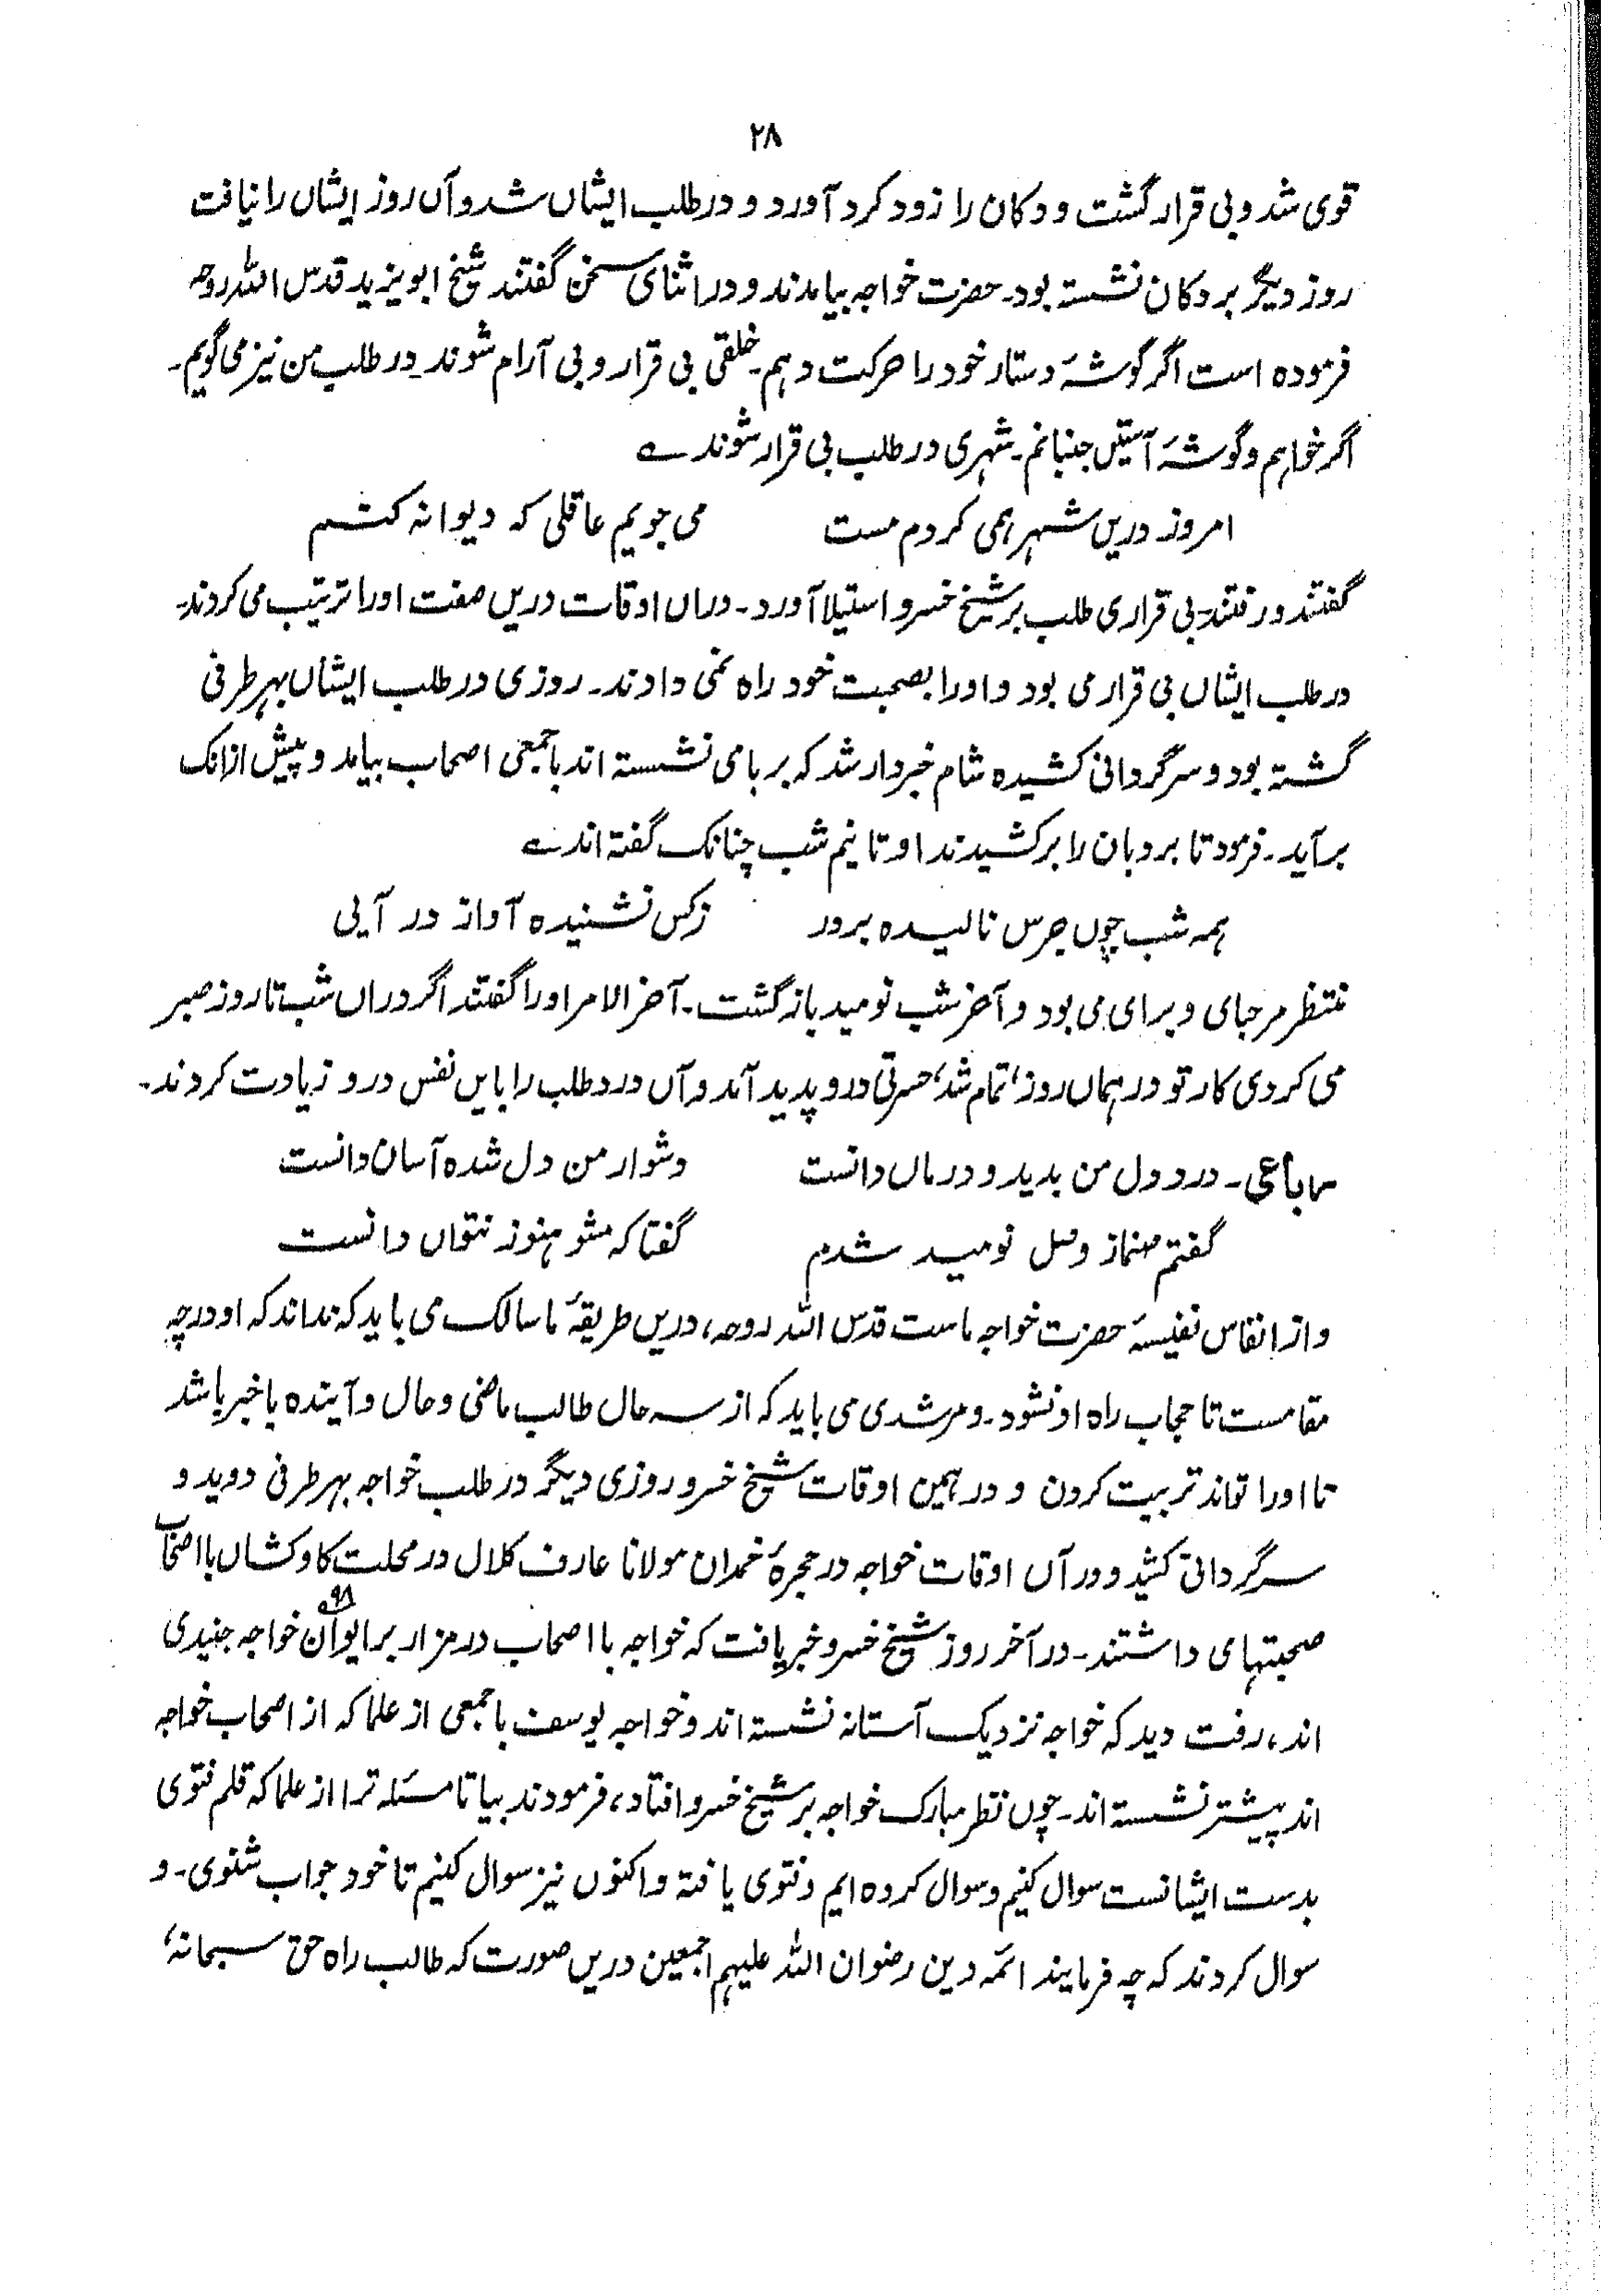 ۲۸
قوی شد و بی قرار گشت و دکان را زود کرد آورد و در طلب ایشاں شد و آں روز ایشاں را نیافت
روز دیگر بر دکان نشسته بود۔ حضرت خواجه بیامدند و در اثنای سخن گفتند شیخ ابو یزید قدس الله روحه
فرموده است اگر گوشۂ دستار خود را حرکت دہم۔ خلقی بی قرار و بی آرام شوند۔ در طلب من نیز می گویم۔
اگر خواہم و گوشۂ آستیں جنبانم۔ شہری در طلب بی قرار شوند ے
امروز دریں شہر ہمی کردم مست می جویم عاقلی که دیوانه کنم
گفتند و رفتند۔ بی قراری طلب بر شیخ خسرو استیلا آورد۔ دراں اوقات دریں صفت اورا ترتیب می کردند۔
در طلب ایشاں بی قرار می بود و اورا بصحبت خود راه نمی دادند۔ روزی در طلب ایشاں بہر طرفی
گشته بود و سرگردانی کشیده شام خبردار شد که بر بامی نشسته اند با جمعی اصحاب بیامد و پیش ازانک
برآید۔ فرمود تا بردبان را بر کشیدند او تا نیم شب چنانک گفته اند ے
ہمہ شب چوں جرس نالیده بر در زکس نشنیده آواز در آیی
منتظر مرحبای و برای می بود و آخر شب نومید باز گشت۔ آخر الامر اورا گفتند اگر دراں شب تا روز صبر
می کردی کار تو در ہماں روز، تمام شد، حسرتی درو پدید آمد و آں درد طلب را بایں نفس درو زیادت کردند۔
رباعی۔ درد دل من بدید و درماں دانست دشوار من دل شده آسان دانست
گفتم صنما ز وصل نومید شدم گفتا که مشو ہنوز نتواں دانست
و از انفاس نفیسۂ حضرت خواجه ماست قدس الله روحه، دریں طریقۂ ما سالک می باید که نداند که او در چه
مقامست تا حجاب راه او نشود۔ و مرشدی می باید که از سه حال طالب ماضی و حال و آینده با خبر باشد
تا اورا تواند تربیت کردن و در ہمین اوقات شیخ خسرو روزی دیگر در طلب خواجه بہر طرفی دوید و
سرگردانی کشید و در آں اوقات خواجه در حجرۂ خمدان مولانا عارف کلال در محلت کاوکشاں با اصحاب
صحبتہای داشتند۔ در آخر روز شیخ خسرو خبر یافت که خواجه با اصحاب در مزار بر ایوان۹۸ خواجه جنیدی
اند، رفت دید که خواجه نزدیک آستانه نشسته اند و خواجه یوسف با جمعی از علما که از اصحاب خواجه
اند پیشتر نشسته اند۔ چوں نظر مبارک خواجه بر شیخ خسرو افتاد، فرمودند بیا تا مسئله ترا از علما که قلم فتوی
بدست ایشانست سوال کنیم و سوال کرده ایم و فتوی یافته و اکنوں نیز سوال کنیم تا خود جواب شنوی۔ و
سوال کردند که چه فرمایند ائمه دین رضوان الله علیہم اجمعین دریں صورت که طالب راه حق سبحانه،